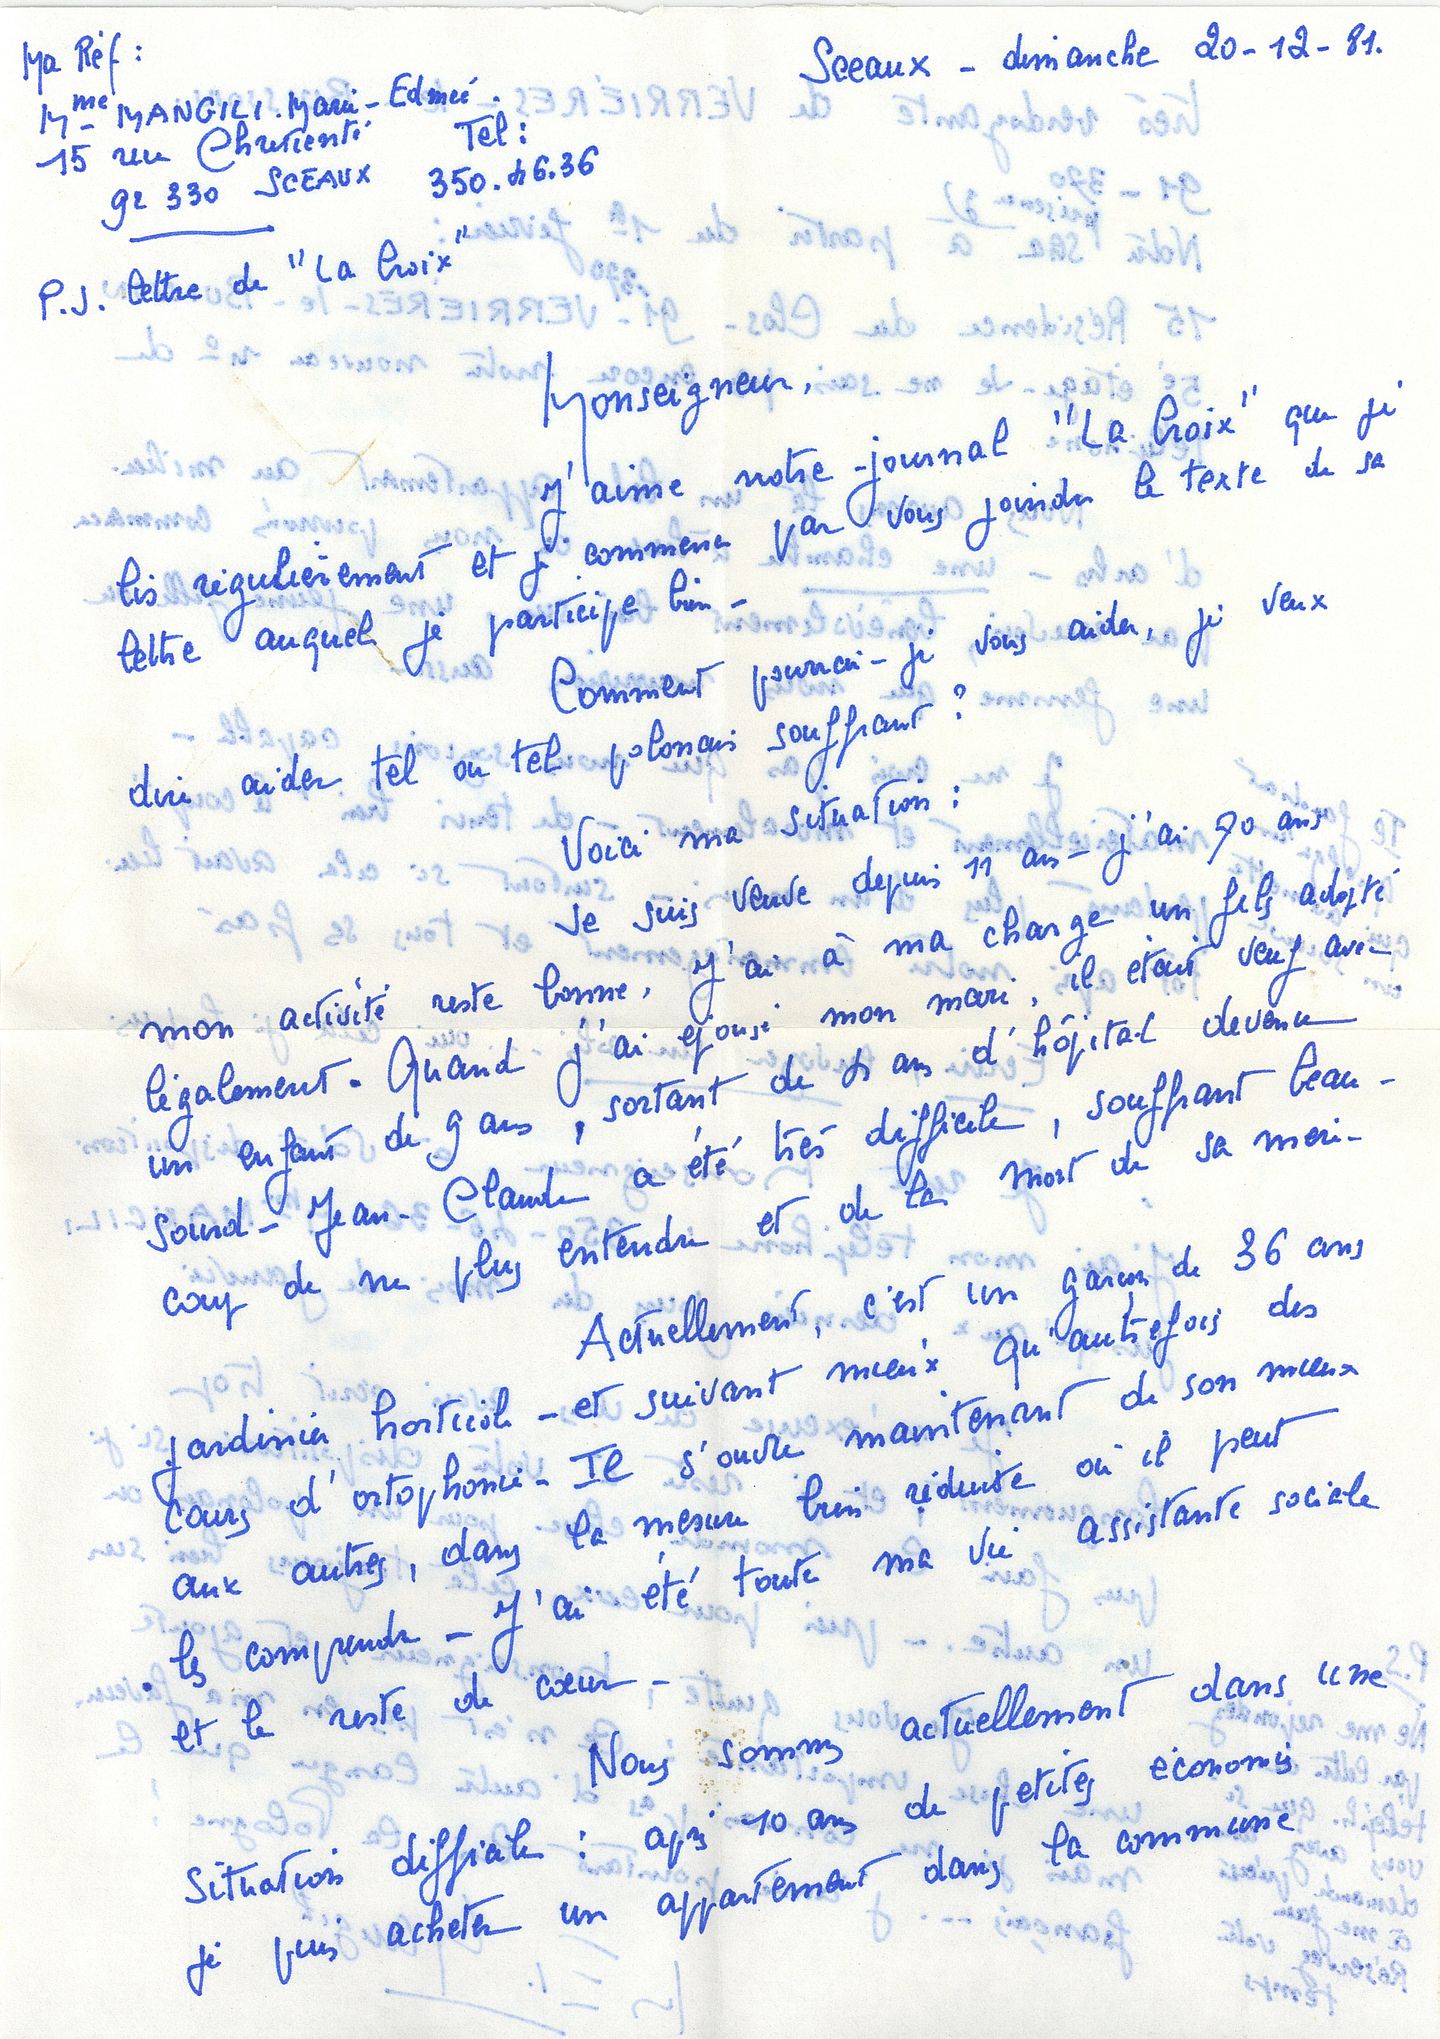 Ma Réf :
Mme MANGILI. Marie-Edmée.
15 rue Chrétienté Tel :
92 330 SCEAUX 350.46.36
Sceaux - dimanche 20-12-81.
P.J. lettre de "La Croix"
Monseigneur,
J'aime notre journal "La Croix" que je
lis régulièrement et je commence par vous joindre le texte de sa
lettre auquel je participe bien -
Comment pourrai-je vous aider, je veux
dire aider tel ou tel polonais souffrant ?
Voici ma situation :
Je suis veuve depuis 11 ans - j'ai 70 ans
mon activité reste bonne, J'ai à ma charge un fils adopté
légalement. Quand j'ai épousé mon mari, il était veuf avec
un enfant de 9 ans, sortant de 4 ans d'hôpital devenu
sourd - Jean-Claude a été très difficile, souffrant beau-
coup de ne plus entendre et de la mort de sa mère -
Actuellement, c'est un garçon de 36 ans
jardinier horticole - et suivant mieux qu'autrefois des
cours d'ortophonie - Il s'ouvre maintenant de son mieux
aux autres, dans la mesure bien réduite où il peut
les comprendre - J'ai été toute ma vie assistante sociale
et le reste de cœur -
Nous sommes actuellement dans une
situation difficile : après 10 ans de petites économies
je puis acheter un appartement dans la commune